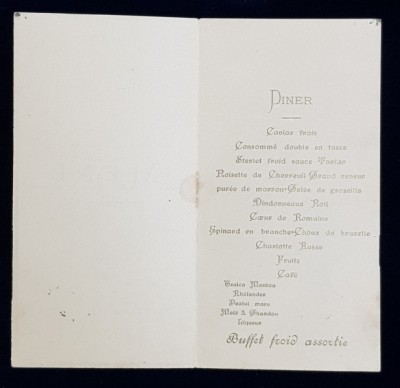 DINER
Caviar frais
Consommé double en tasse
Sterlet froid sauce Tartar
Noisette de Chevreuil Grand veneur
purée de marron-Gelée de groseille
Dindonneaux Roti
Cœur de Romaine
Epinard en branche-Choux de bruxelle
Charlotte Russe
Fruits
Café
Masica
Moët & Chandon
Liqueur
Buffet froid assortie